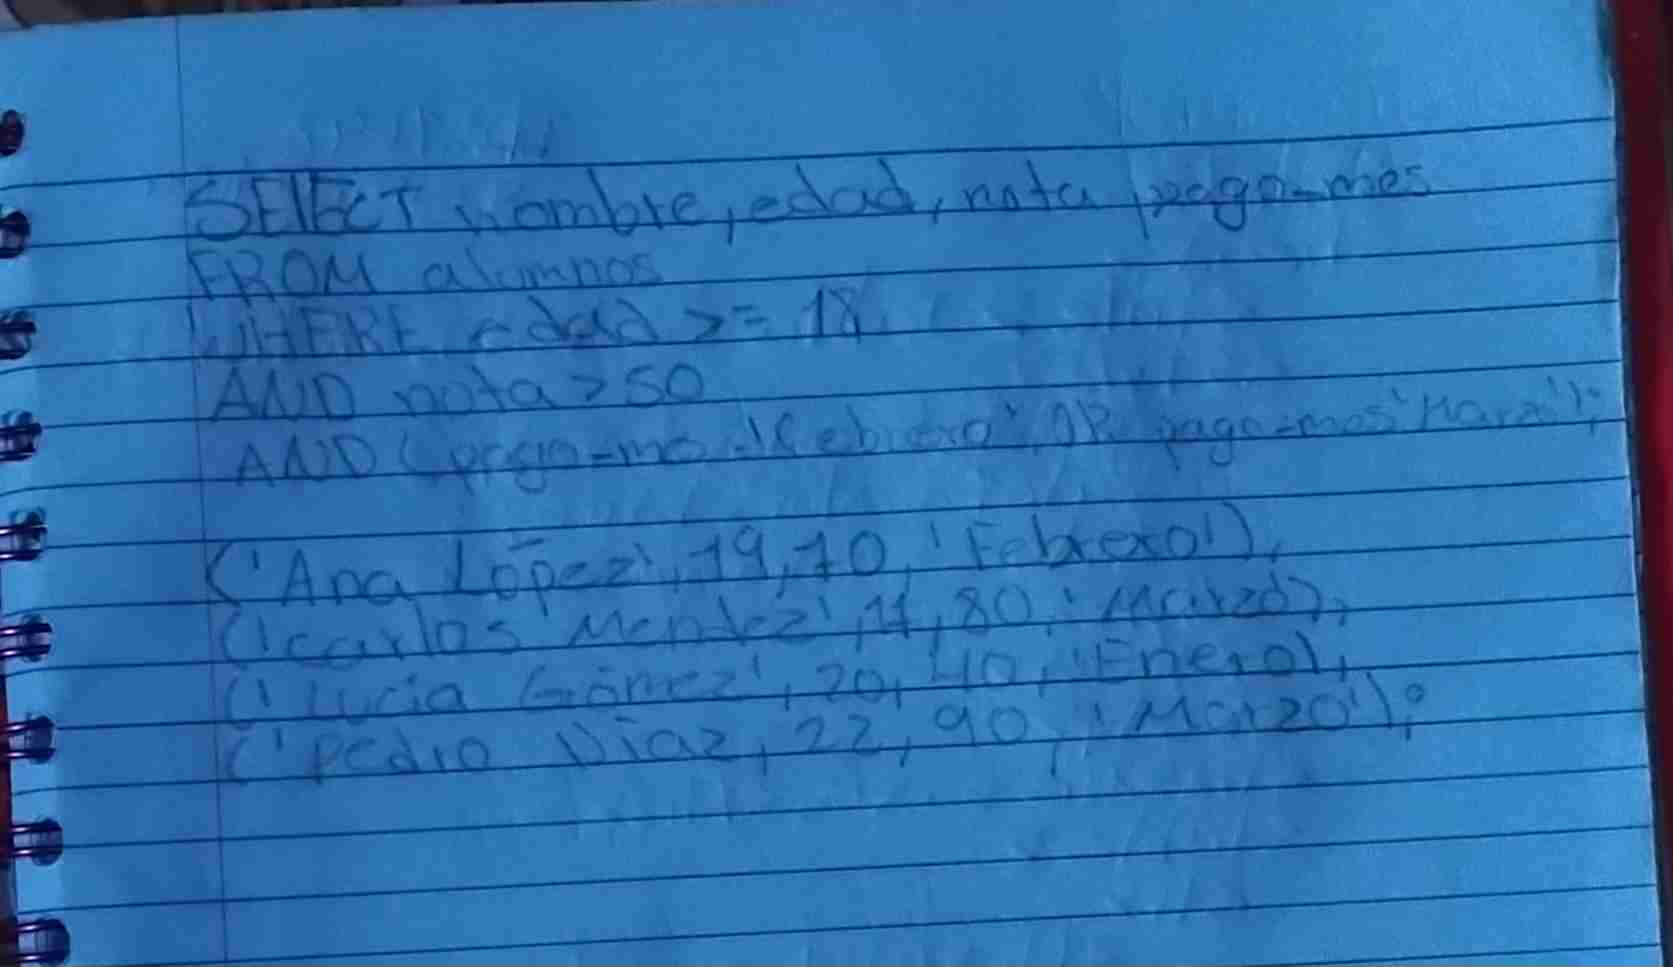 SELECT nombre, edad, nota, pago-mes
FROM alumnos
WHERE edad >= 18
AND nota > 50
AND (pago-me = 'Febrero' OR pago-mes 'Marzo');
('Ana López', 19, 70, 'Febrero'),
('carlos Mendez', 17, 80, 'Marzo'),
('Lucia Gómez', 20, 40, 'Enero'),
('pedro Diaz, 22, 90, 'Marzo');